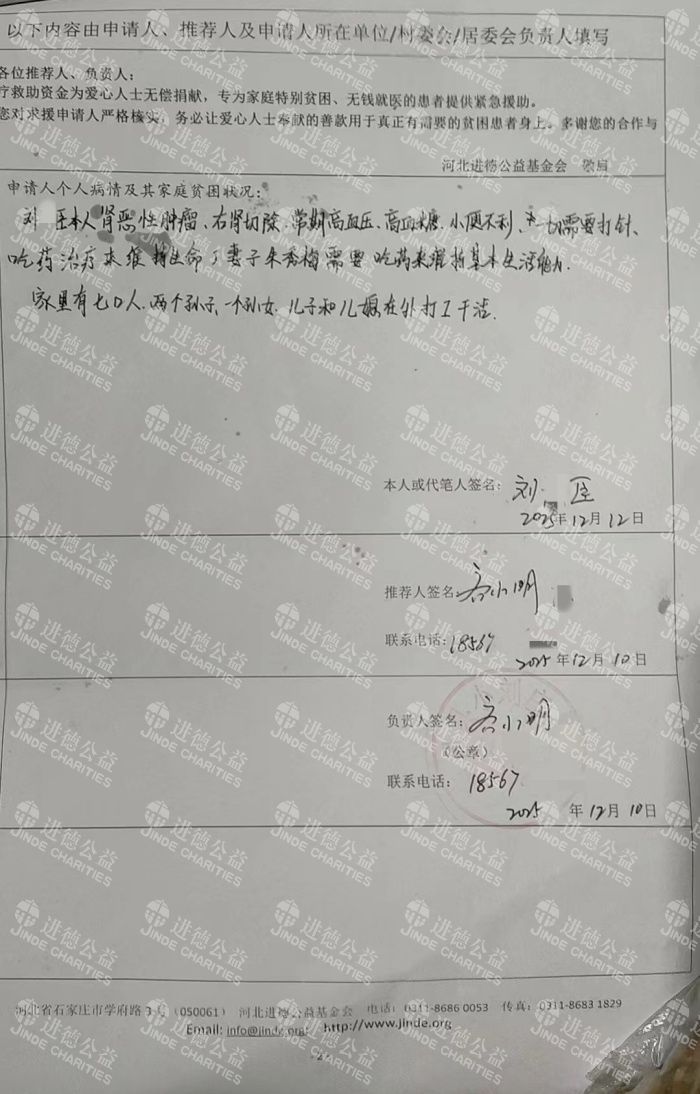 以下内容由申请人、推荐人及申请人所在单位/村委会/居委会负责人填写
各位推荐人、负责人：
疗救助资金为爱心人士无偿捐献，专为家庭特别贫困、无钱就医的患者提供紧急援助。
您对求援申请人严格核实，务必让爱心人士奉献的善款用于真正有需要的贫困患者身上。多谢您的合作与
河北进德公益基金会 敬启
申请人个人病情及其家庭贫困状况：
刘 臣本人肾恶性肿瘤、右肾切除、常期高血压、高血糖、小便不利、 一切需要打针、
吃药治疗来维持生命，妻子朱秀梅需要吃药来维持基本生活能力.
家里有七口人.两个孙子.一个孙女.儿子和儿媳在外打工干活.
本人或代笔人签名：刘 臣
2025年12月12日
推荐人签名 小明
联系电话：18567
2025年12月10日
负责人签名： 小明
（公章）
联系电话：18567
2025 年12月10日
河北省石家庄市学府路3号（050061） 河北进德公益基金会 电话：0311-8686 0053 传真：0311-8683 1829
Email: info@jinde.org http://www.jinde.org
进德公益
JINDE CHARITIES